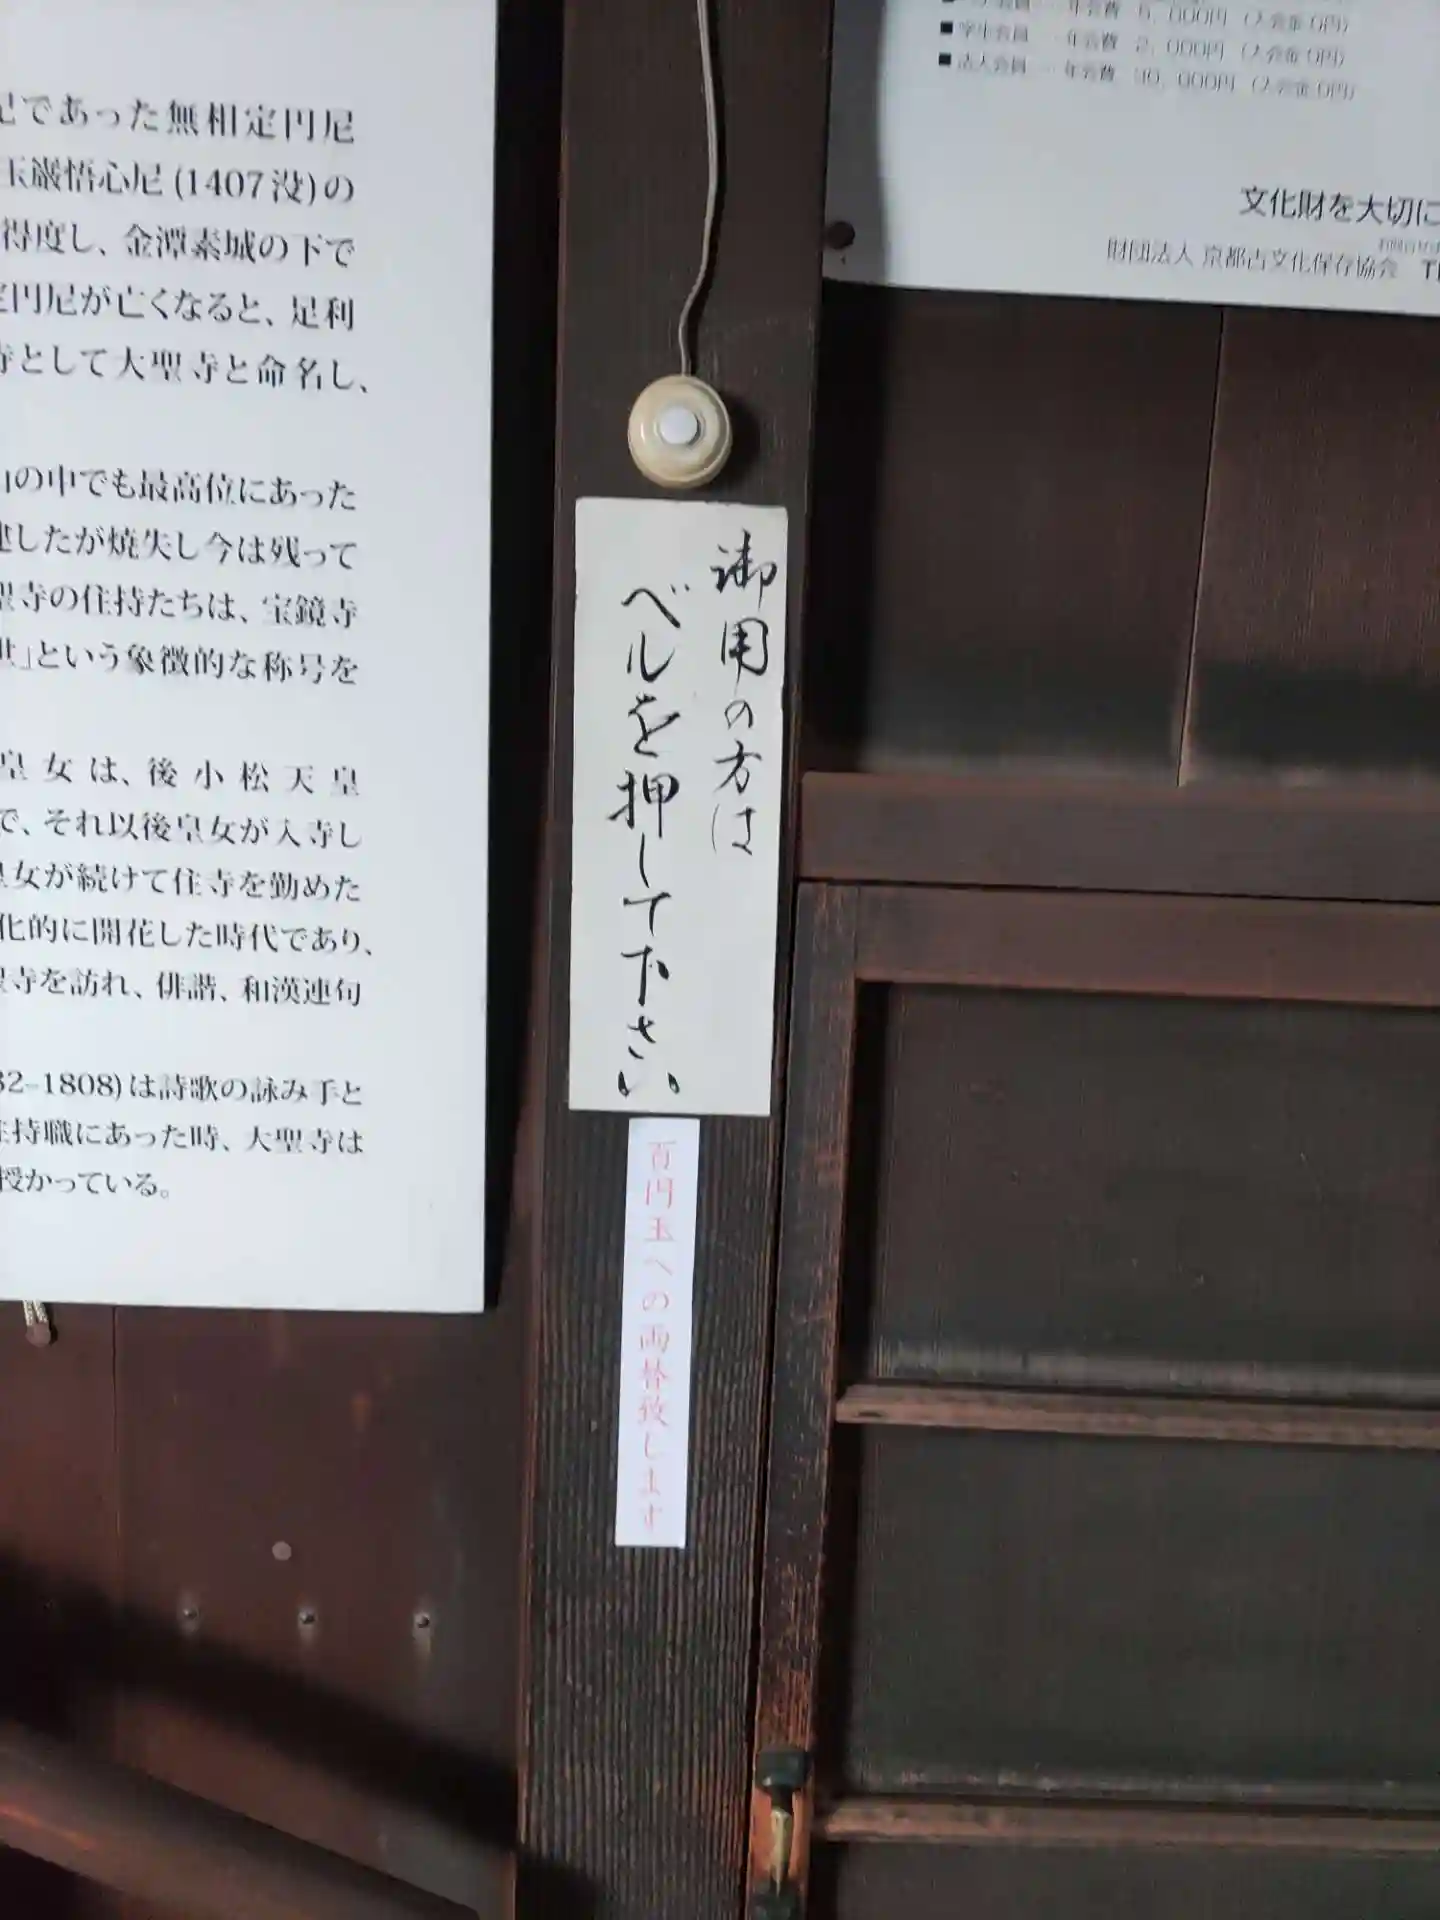 尼であった無相定円尼
玉巌悟心尼(1407没)の
得度し、金潭素城の下で
定円尼が亡くなると、足利
寺として大聖寺と命名し、
山の中でも最高位にあった
建したが焼失し今は残って
聖寺の住持たちは、宝鏡寺
世」という象徴的な称号を
皇女は、後小松天皇
で、それ以後皇女が入寺し
皇女が続けて住寺を勤めた
化的に開花した時代であり、
聖寺を訪れ、俳諧、和漢連句
32-1808)は詩歌の詠み手と
住持職にあった時、大聖寺は
授かっている。
御用の方は
ベルを押して下さい
百円玉への両替致します
会員 … 年会費 5,000円 (入会金0円)
■学生会員 … 年会費 2,000円 (入会金0円)
■法人会員 … 年会費 30,000円 (入会金0円)
文化財を大切に
財団法人 京都古文化保存協会